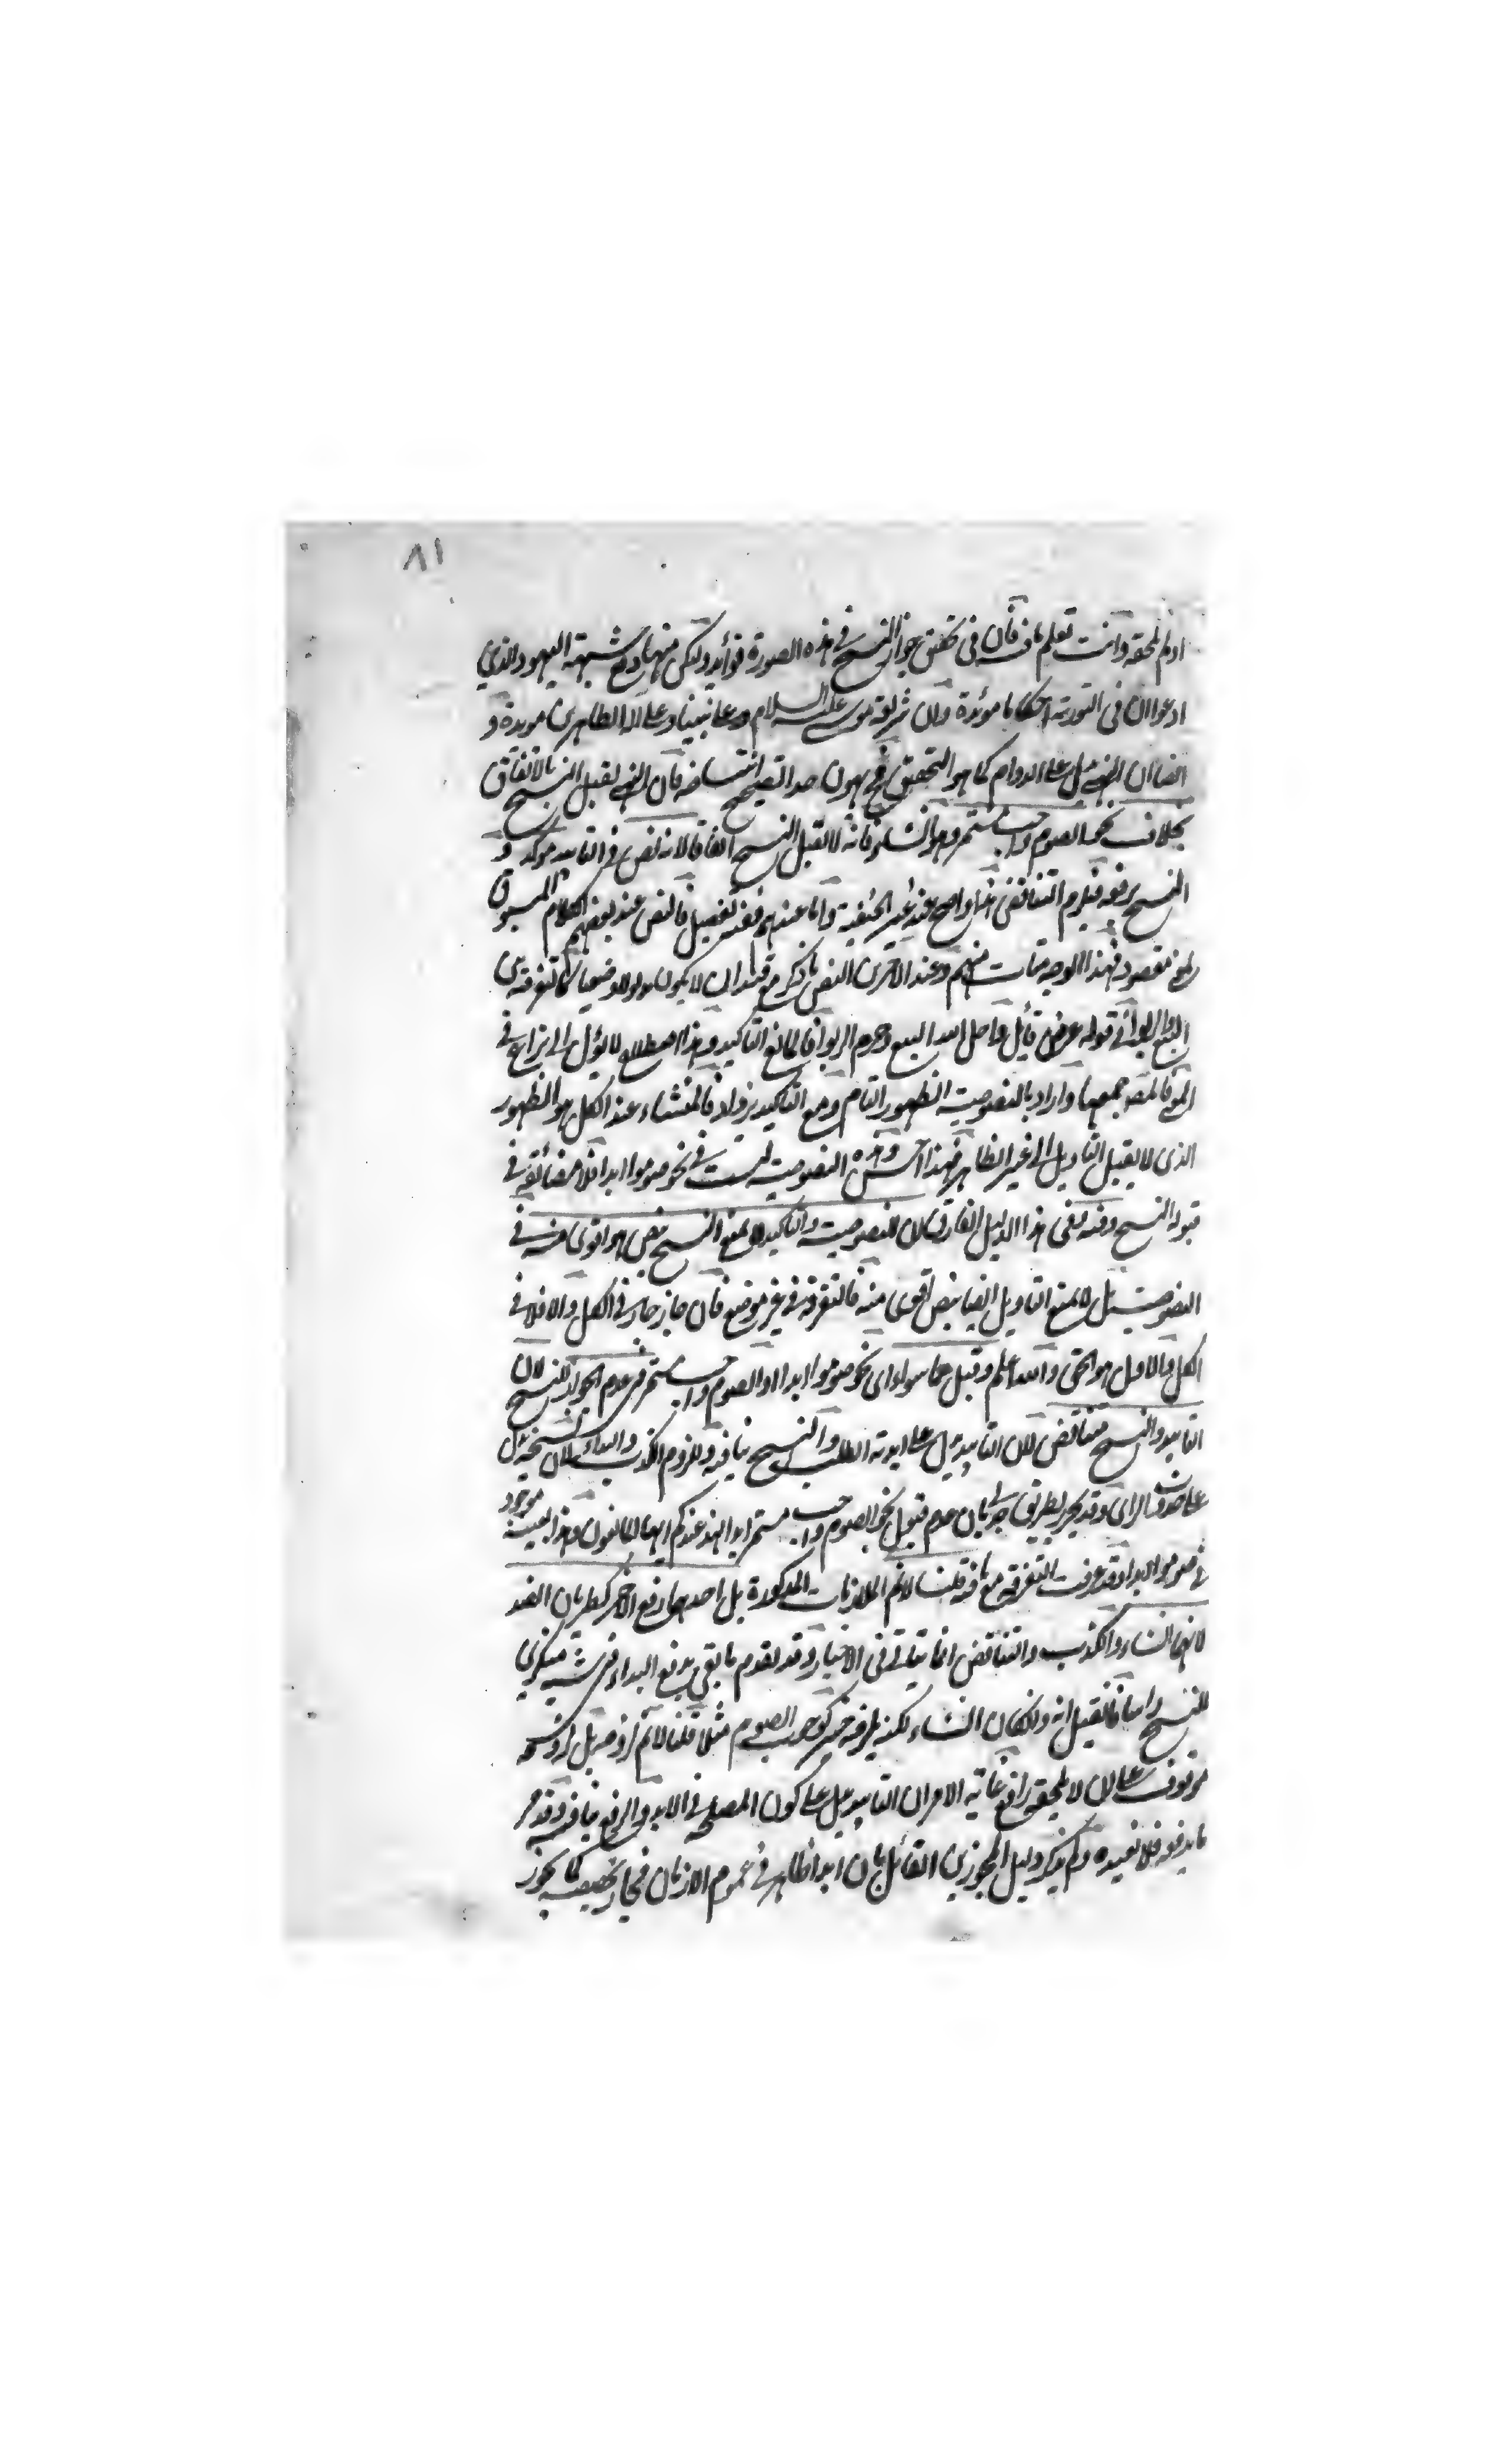 ٨١
وانت تعلم ما فيه فان في تحقق جواز النسخ في هذه الصورة فوائد ولكن منها دفع شبهة اليهود الذين
ادعوا ان في التورية احكاما مؤبدة وان شريعة موسى عليه السلام وعلى نبينا وعلى اله الطاهرين مؤبدة و
ايضا ان النهي يدل على الدوام كما هو التحقيق فان النهي يقبل النسخ بالاتفاق
بخلاف نحو الصوم واجب مستمر وهو انشاء فانه لا يقبل النسخ اتفاقا لانه نص في التابيد موكد و
النسخ يرفعه فيلزم التناقض هذا واضح عند غير الحنفية واما عندهم ففيه تفصيل فالنص عند بعضهم الكلام المسوق
لمعنى مقصود فهذا الوجه منهم وعند الاخرين النص ما ذكر مع قيد ان لا يكون كالتفرقة بين
البيع والربوا في قوله عز من قائل احل الله البيع وحرم الربوا فالمانع التاكيد وهذا اصطلاح لا يؤل الى نزاع في
المعنى واراد بالنصوصية الظهور التام ومع التاكيد يزداد فالمنشاء عند الكل هو الظهور
الذي لا يقبل التاويل الى غير الظاهر فهذا وهذه النصوصية ليست في نحو صوموا ابدا فلا مضائقة في
قبوله النسخ وفيه بقي هذا الدليل الفارق لان النصوصية والتاكيد لا يمنع النسخ بنص هو اقوى منه في
النصوصية بل لا يمنع التاويل ايضا بنص اقوى منه فالتفرقة في غير موضع فان جاز جاز في الكل والا فلا في
الكل والاول هو الحق والله اعلم وقيل هما سواء اي نحو صوموا ابدا والصوم واجب مستمر في عدم الجواز للنسخ لان
التابيد والنسخ متناقض لان التابيد يدل على ابدية الطلب والنسخ ينافيه وللزوم الكذب والبداء لان نسخه يدل
على حدوث الراي وقد يحرر بطريق جدلي بان عدم قبول نحو الصوم واجب مستمر ابدا عندكم وهذا بعينه موجود
في صوموا ابدا وقد عرفت التفرقة مع ما فيه قلنا لا نم الملازمات المذكورة بل احدهما رفع الاخر كطريان الضد
لانهما انشاء والكذب والتناقض انما يتاتى في الاخبار وقد تقدم ما بقي بدفع البداء في شبهة منكري
النسخ واما ما يقال انه وان كان انشاء لكنه يلزمه خبر كوجوب الصوم مثلا قلنا لا نم لزومه بل لزومه
موقوف على ان لا يلحقه رافع غاية الامر ان التابيد يدل على كون المصلحة في الابد والرفع ينافيه وقد مر
ما يدفعه فلا نعيده ولم يذكر دليل المجوزين القائل بان ابدا ظاهر في عموم الازمان فجاز تخصيصه كما يجوز